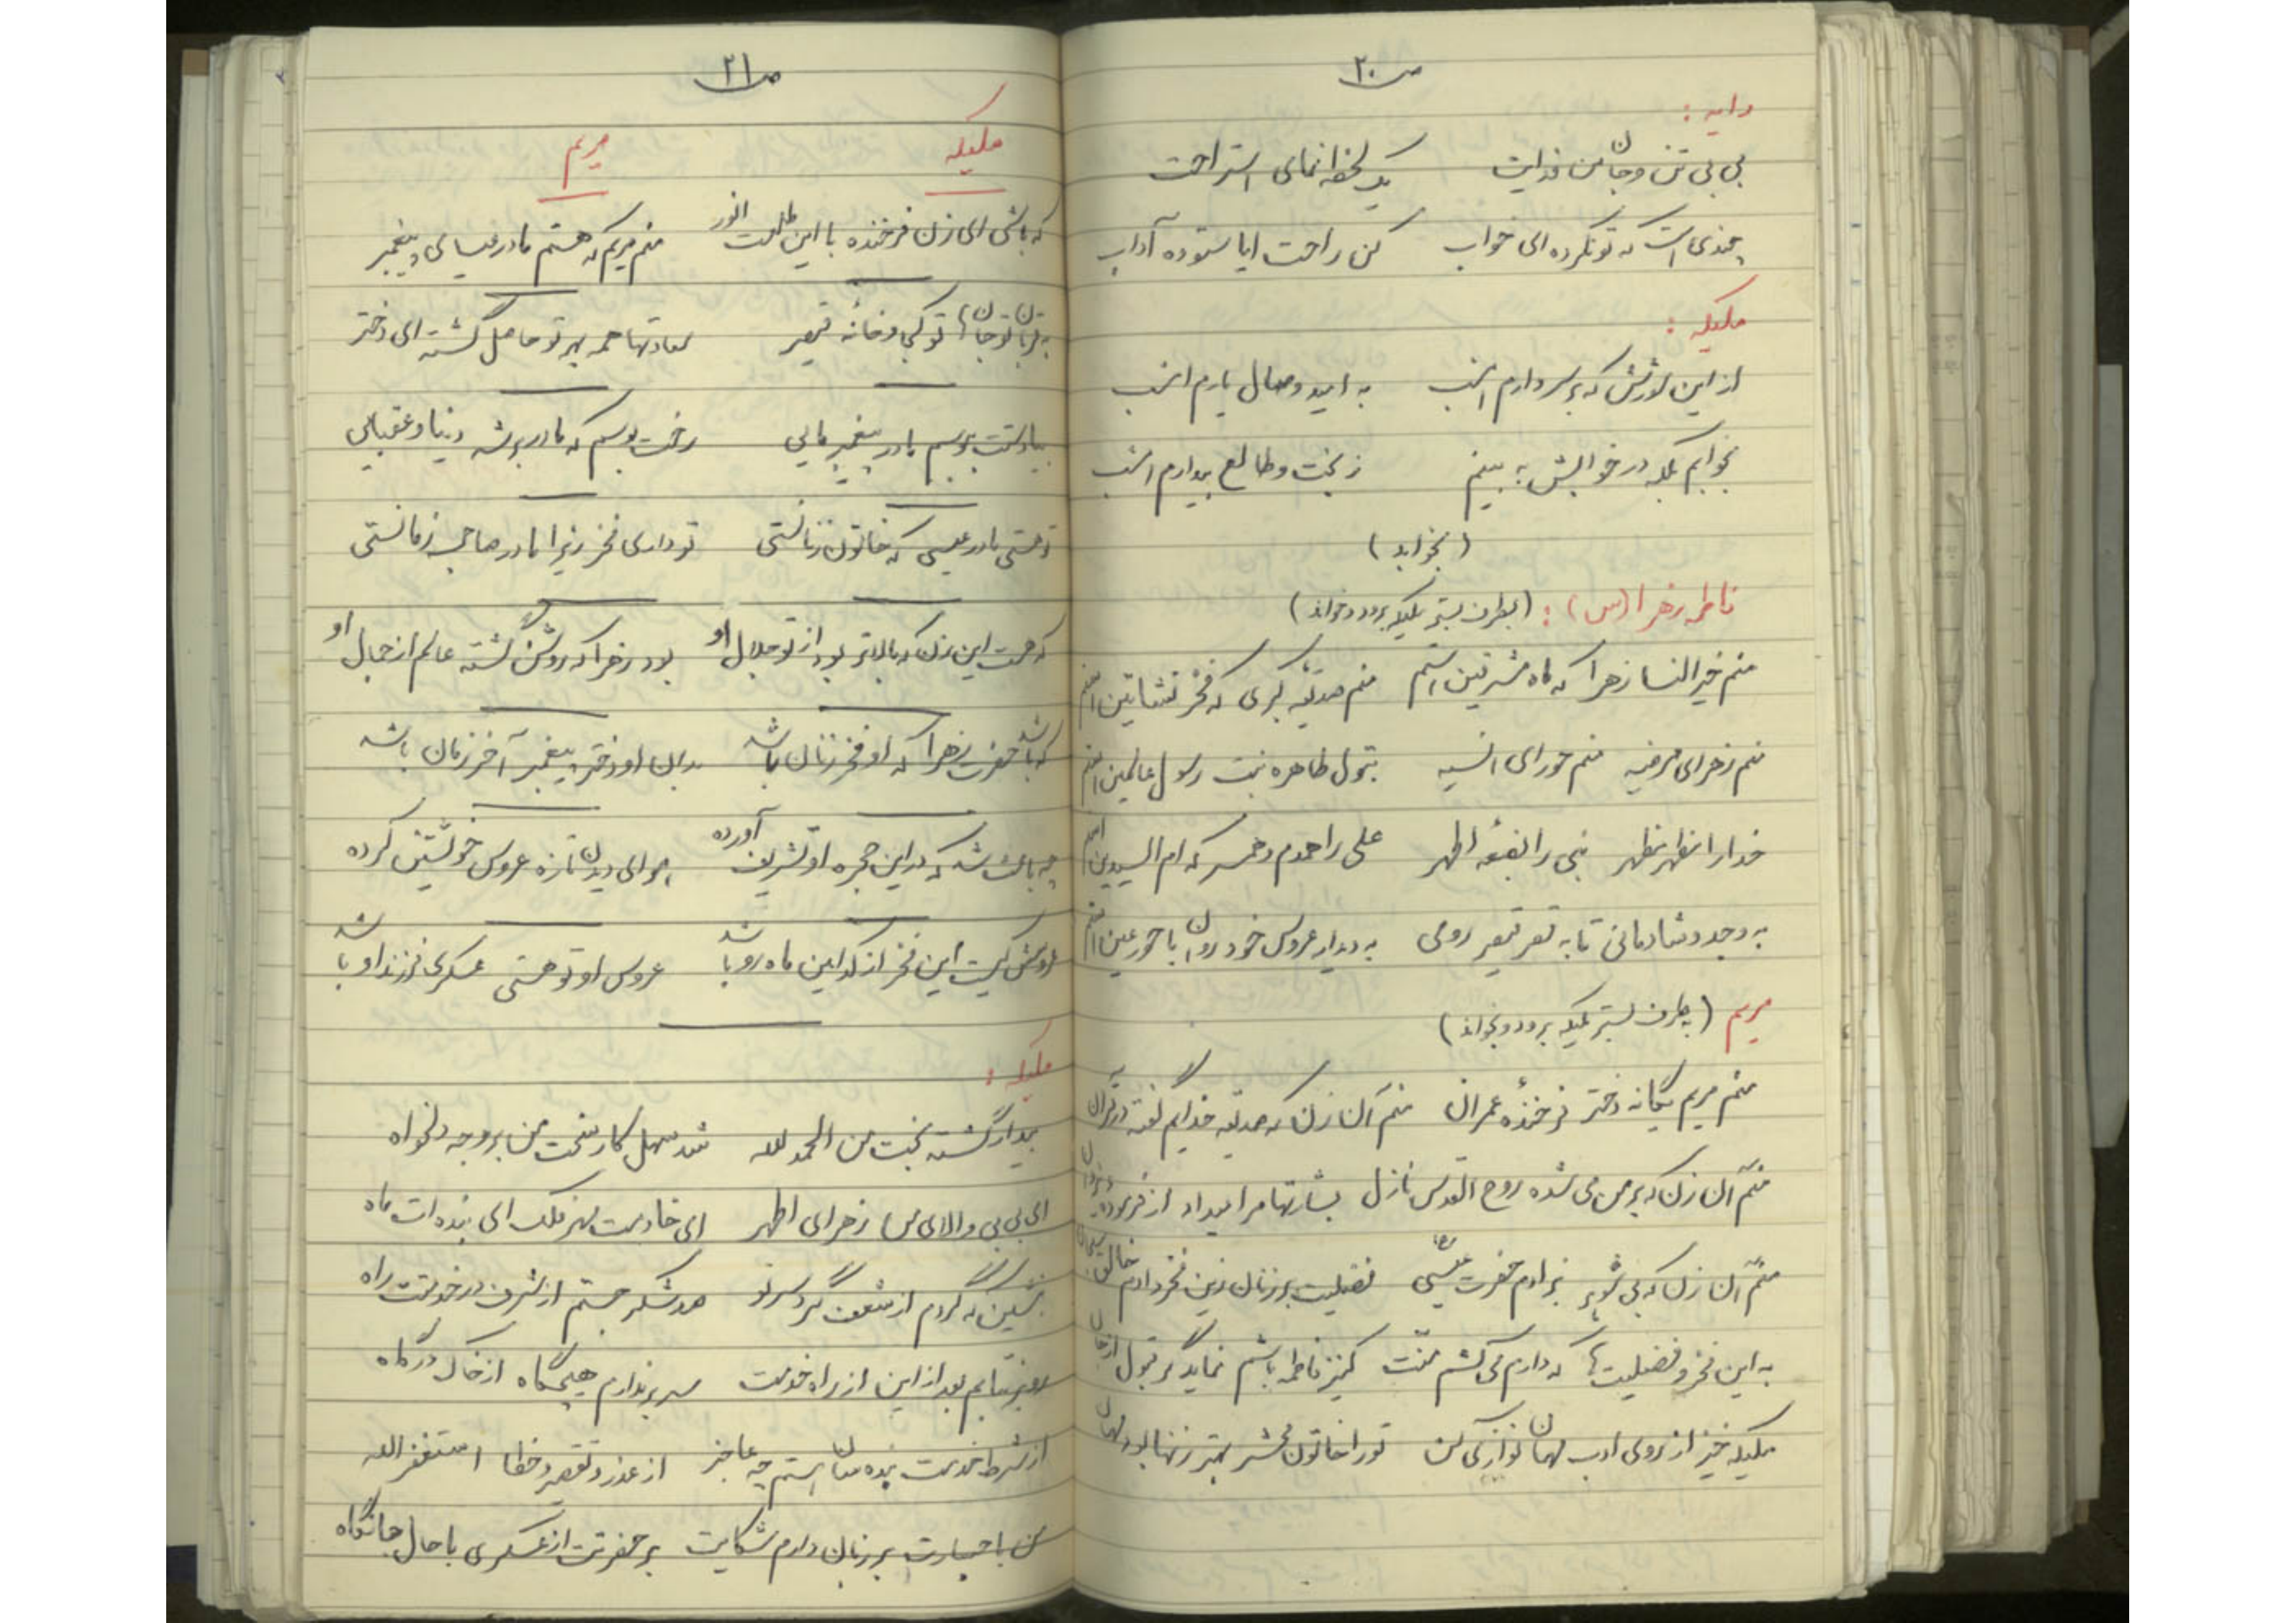 ص۲۰
دایه :
بی بی تن و جان من فدایت یک لحظه نمای استراحت
چندی است که تو نکرده ای خواب کن راحت ایا ستوده آداب
ملیکه :
از این شورش که بر سر دارم امشب به امید وصال یارم امشب
بخوابم بلکه در خوابش به بینم ز بخت و طالع بیدارم امشب
(بخوابد)
فاطمه زهرا (س) : (بطرف بستر ملیکه برود و بخواند)
منم خیرالنسا زهرا که ماه مشرقین استم منم صدیقه کبری که فخر نشاتین استم
منم زهرای مرضیه منم حورای انسیه بتول طاهره بنت رسول عالمین استم
خدا را مظهر مظهر نبی را بضعه اطهر علی را همدم و همسر که ام السیدین استم
به وجد و شادمانی تا به قصر قیصر رومی به دیدار عروس خود روان با حورعین استم
مریم (بطرف بستر ملیکه برود و بخواند)
منم مریم یگانه دختر فرخندهٔ عمران منم آن زن که صدیقه خدایم گفته در قرآن
منم آن زن که بر من می شده روح القدس نازل بشارتها مرا میداد از فرموده یزدان
منم آن زن که بی شوهر بزادم حضرت عیسی فضیلت بر زنان زین فخر دادم خالق سبحان
به این فخر و فضیلت ها که دارم می کشم منت کنیز فاطمه باشم نماید گر قبول از جان
ملیکه خیز از روی ادب مهمان نوازی کن تو را خاتون محشر بهتر زنها بود مهمان
ص۲۱
ملیکه مریم
که باشی ای زن فرخنده با این طلعت انور منم مریم که هستم مادر عیسای پیغمبر
به قربان تو جانها تو کجا و خانهٔ قیصر سعادتها همه بهر تو حاصل گشته ای دختر
بیا دستت ببوسم مادر پیغمبر مایی رخت بوسم که مادر بر شه دنیا و عقبایی
تو هستی مادر عیسی که خاتون زنانستی تو داری فخر زیرا مادر صاحب زمانستی
که هست این زن که بالاتر بود از تو جلال او بود زهرا که روشن گشته عالم از جمال او
که باشد حضرت زهرا که او فخر زنان باشد بدان او دختر پیغمبر آخر زمان باشد
چه باعث شد که در این حجره او تشریف آورده هوای دیدن تازه عروس خویشتن کرده
عروسش کیست این فخر از کدامین ماه رو باشد عروس او تو هستی عسکری فرزند او باشد
ملیکه :
بیدار گشته بخت من الحمد لله شد سهل کار سخت من بر وجه دلخواه
ای بی بی والای من زهرای اطهر ای خادمت مهر فلک ای بنده ات ماه
بنشین که گردم از شعف گرد سر تو صد شکر جستم از شرف در خدمتت راه
رو بر نتابم بعد از این از راه خدمت سر بر ندارم هیچگاه از خاک درگاه
از شرط خدمت بنده سان استم چه عاجز از عذر و تقصیر و خطا استغفر الله
من با جسارت بر زبان دارم شکایت بر حضرتت از عسکری با حال جانکاه